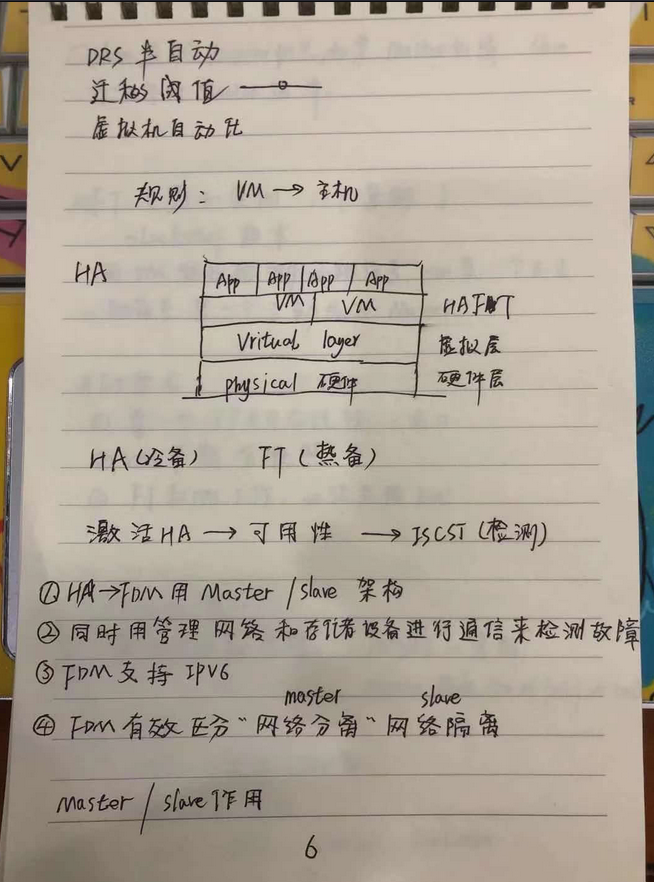 DRS 半自动
迁移阈值
虚拟机自动化
规则： VM → 主机
HA
App App App App
VM VM HA FT
Vritual layer 虚拟层
physical 硬件 硬件层
HA (冷备) FT (热备)
激活HA → 可用性 → ISCST (检测)
① HA→FDM用 Master / slave 架构
② 同时用管理网络和存储设备进行通信来检测故障
③ FDM支持 IPV6
master slave
④ FDM有效区分“网络分离”网络隔离
Master / slave作用
6